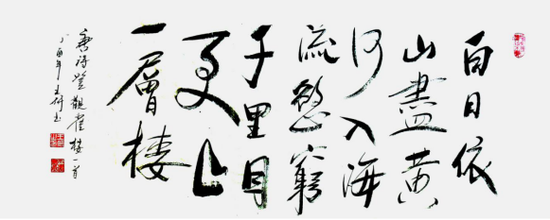 白日依
山盡黃
河入海
流慾窮
千里目
更上
一層樓
詩登觀雀樓一首
丁酉年